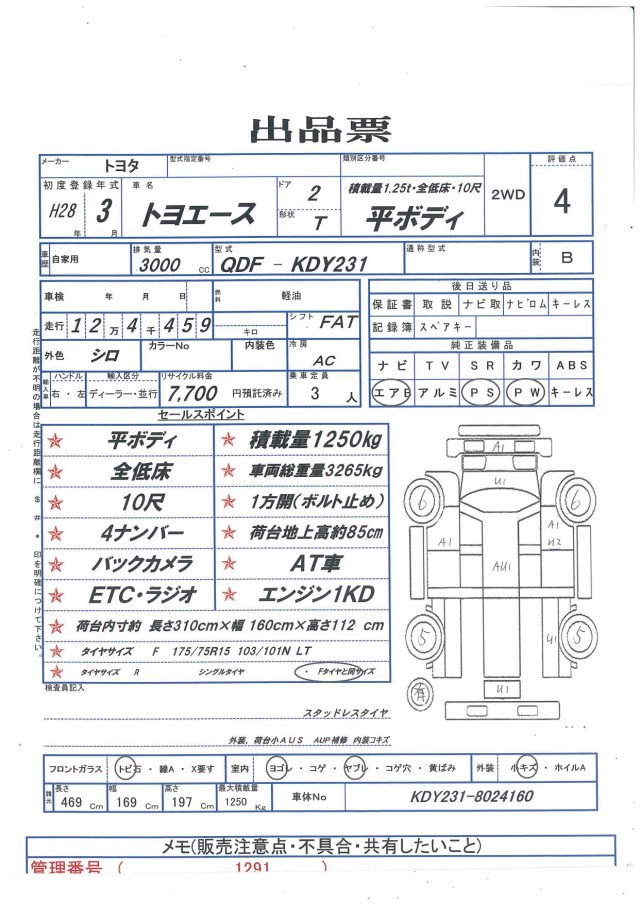 出品票
メーカー トヨタ 型式指定番号 類別区分番号 評価点
初度登録年式 車名 ドア 2 積載量1.25t・全低床・10尺 2WD 4
H28年 3月 トヨエース 形状 T 平ボディ
車歴 自家用 排気量 3000 cc 型式 QDF - KDY231 通称型式 内装 B
車検 年 月 日 燃料 軽油 後日送り品
保証書 取説 ナビ取 ナビロム キーレス
走行 12万4千459 キロ シフト FAT 記録簿 スペアキー
外色 シロ カラーNo 内装色 冷房 AC 純正装備品
ナビ TV SR カワ ABS
輸入車 ハンドル 右・左 輸入区分 ディーラー・並行 リサイクル料金 7,700 円預託済み 乗車定員 3 人
エアB アルミ PS PW キーレス
走行距離が不明の場合は走行距離欄に $ # * 印を明確につけて下さい。
セールスポイント
平ボディ 積載量1250kg
全低床 車両総重量3265kg
10尺 1方開(ボルト止め)
4ナンバー 荷台地上高約85cm
バックカメラ AT車
ETC・ラジオ エンジン1KD
荷台内寸約 長さ310cm×幅 160cm×高さ112 cm
タイヤサイズ F 175/75R15 103/101N LT
タイヤサイズ R シングルタイヤ ・ Fタイヤと同サイズ
A1
U1
6 6
A1 A1
U2
AU1
5 5
U1
有 U1
検査員記入
スタッドレスタイヤ
外装、荷台小AUS AUP補修 内装コキズ
フロントガラス トビ石・線A・X要す 室内 ヨゴレ・コゲ・ヤブレ・コゲ穴・黄ばみ 外装 小キズ・ホイルA
諸元 長さ 469 Cm 幅 169 Cm 高さ 197 Cm 最大積載量 1250 Kg 車体No KDY231-8024160
メモ(販売注意点・不具合・共有したいこと)
管理番号 ( 1291 )